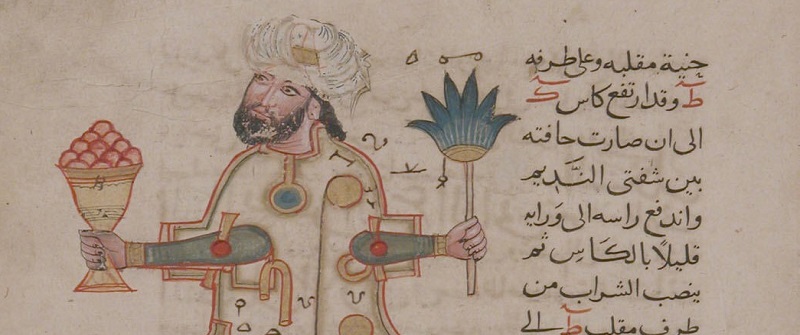 جنية مقلبه وعلى طرفه
ط وقد ارتفع كاس ك
الى ان صارت حافته
بين شفتى النَّديم
واندفع راسه الى وَرايه
قليلًا بالكَاسِ ثم
ينصب الشراب من
طرف مقلب ط الى